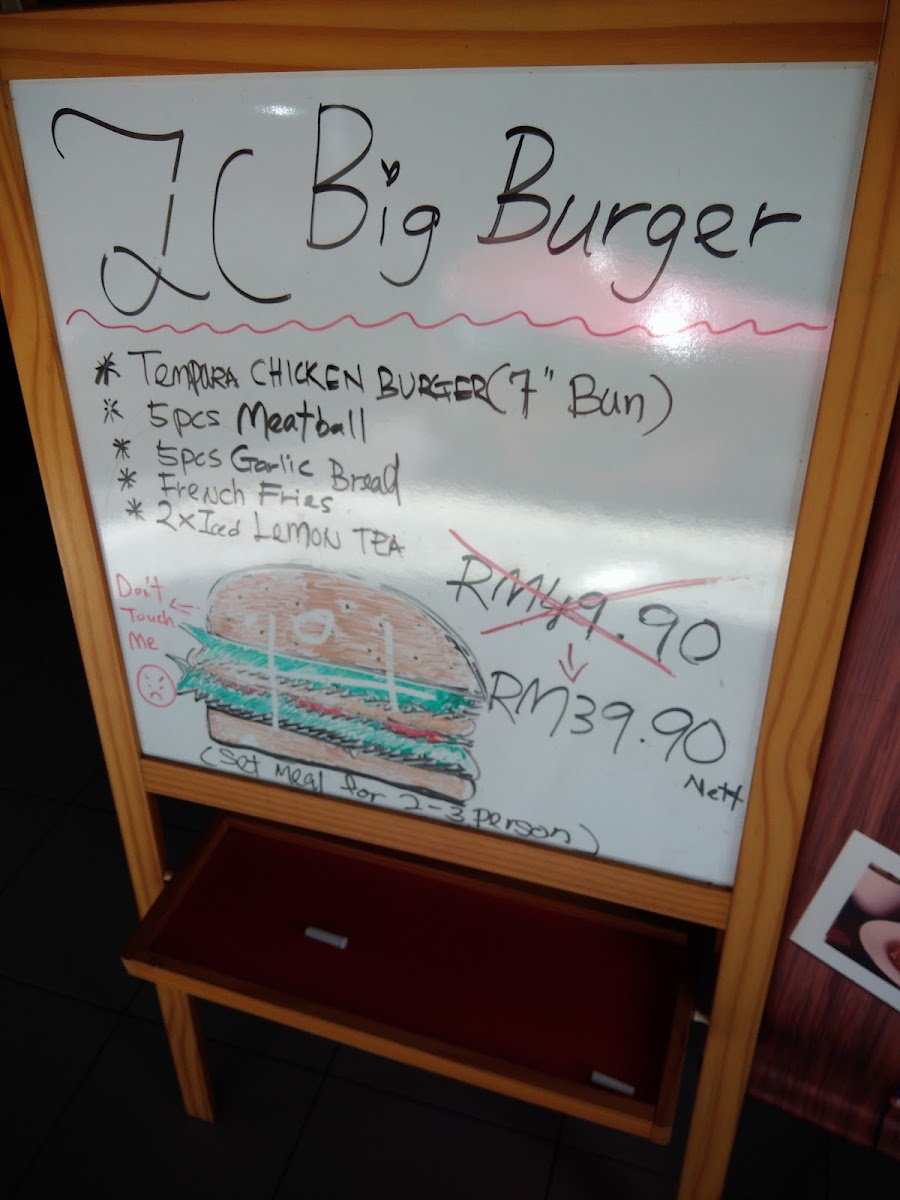 IC Big Burger
* TEMPURA CHICKEN BURGER (7" Bun)
* 5pcs Meatball
* 5pcs Garlic Bread
* French Fries
* 2xIced LEMON TEA
Don't
Touch
Me
RM49.90
RM39.90
Nett
(Set Meal for 2-3 person)